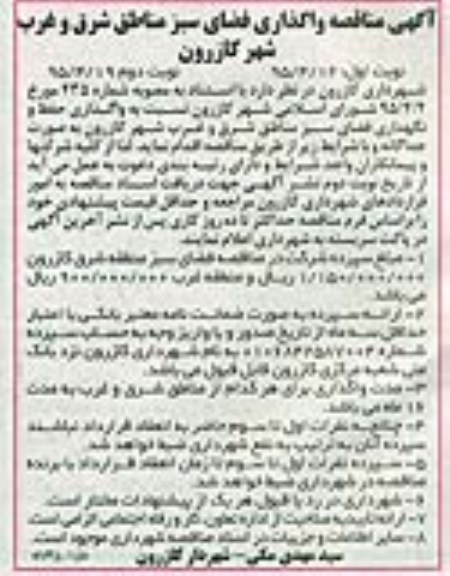 آگهی مناقصه واگذاری فضای سبز مناطق شرق و غرب
شهر کازرون
نوبت اول: ۹۵/۴/۱۲ نوبت دوم ۹۵/۴/۱۹
شهرداری کازرون در نظر دارد با استناد به مصوبه شماره ۲۳۵ مورخ
۹۵/۲/۲ شورای اسلامی شهر کازرون نسبت به واگذاری حفظ و
نگهداری فضای سبز مناطق شرق و غرب شهر کازرون به صورت
جداگانه و با شرایط زیر از طریق مناقصه اقدام نماید. لذا از کلیه شرکتها
و پیمانکاران واجد شرایط و دارای رتبه بندی دعوت به عمل می آید
از تاریخ نوبت دوم نشر آگهی جهت دریافت اسناد مناقصه به امور
قراردادهای شهرداری کازرون مراجعه و حداقل قیمت پیشنهادی خود
را براساس فرم مناقصه حداکثر تا ده روز کاری پس از نشر آخرین آگهی
در پاکت سربسته به شهرداری اعلام نمایند.
۱- مبلغ سپرده شرکت در مناقصه فضای سبز منطقه شرق کازرون
۱/۱۵۰/۰۰۰/۰۰۰ ریال و منطقه غرب ۹۰۰/۰۰۰/۰۰۰ ریال
می باشد.
۲- ارائه سپرده به صورت ضمانت نامه معتبر بانکی با اعتبار
حداقل سه ماه از تاریخ صدور و یا واریز وجه به حساب سپرده
شماره به نام شهرداری کازرون نزد بانک
ملی شعبه مرکزی کازرون قابل قبول می باشد.
۳- مدت واگذاری برای هر کدام از مناطق شرق و غرب به مدت
۱۲ ماه می باشد.
۴- چنانچه نفرات اول تا سوم حاضر به انعقاد قرارداد نباشند
سپرده آنان به ترتیب به نفع شهرداری ضبط خواهد شد.
۵- سپرده نفرات اول تا سوم تا زمان انعقاد قرارداد با برنده
مناقصه در شهرداری ضبط خواهد شد.
۶- شهرداری در رد یا قبول هر یک از پیشنهادات مختار است.
۷- ارائه تأییدیه صلاحیت از اداره تعاون، کار و رفاه اجتماعی الزامی است.
۸- سایر اطلاعات و جزییات در اسناد مناقصه شهرداری موجود است.
سید مهدی مکی - شهردار کازرون